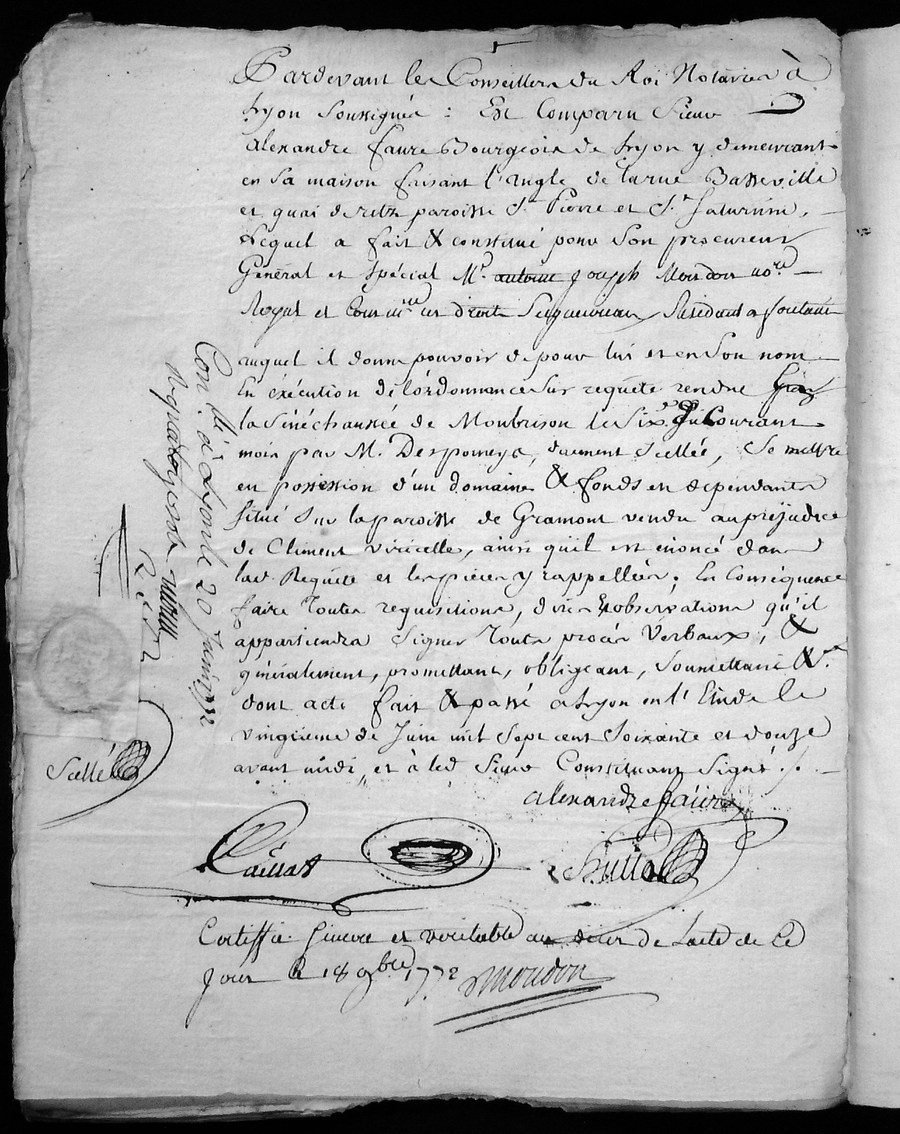 Pardevant les Conseillers du Roi Notaires à
Lyon Soussignés : Est Comparu Sieur
Alexandre Faure Bourgeois de Lyon y demeurant
en sa maison faisant l'angle de la rue Basseville
et quai de retz paroisse St. Pierre et St. Saturnin,
Lequel a fait & constitué pour Son procureur
Général et Spécial Me. antoine Joseph Moudon no.re
Royal et Com.re en droits Seigneuriaux Résidant a
auquel il donne pouvoir de pour lui et en Son nom
En exécution de l'ordonnance Sur requête rendue
la Sénéchaussée de Montbrison le Six du Courant
mois par M. Despomeys, duement Scellée, Se mettre
en possession d'un domaine & fonds en dépendants
Situé Sur la paroisse de Gramont vendu au préjudice
de Climent viricelle, ainsi qu'il est énoncé dans
lad. Requête et les pièces y rappellées ; En Conséquence
faire Toutes requisitions, dires & observations qu'il
appartiendra Signer Touts procès Verbaux, &
généralement, promettant, obligeant, Soumettant &.a
dont acte fait & passé a Lyon en l'Etude le
vingtieme de Juin mil Sept cent Soixante et douze
avant midi, et à led. Sieur Constituant Signé ./.
alexandre faure
Caillat
Certiffié Sincere et veritable au désir de L'acte de Ce
Jour le 18 9bre 1772 Moudon
Con.lé à Lyon le 20 Juin 1772
Scellé